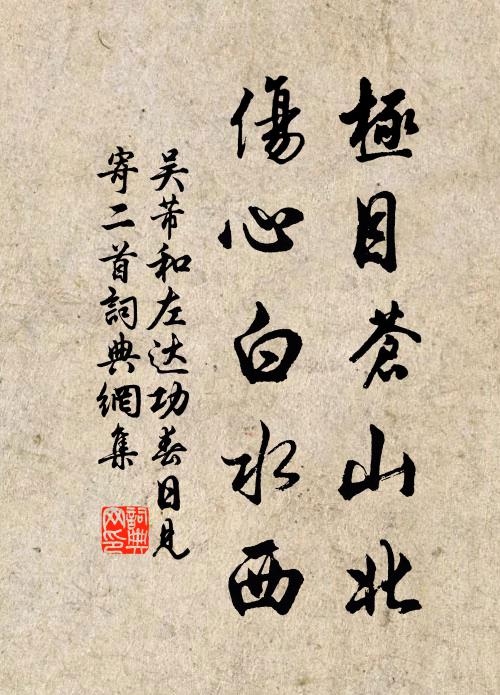 極目蒼山北
傷心白水西
吴芾和左达功春日見
寄二首詞典網集
詞典
网印